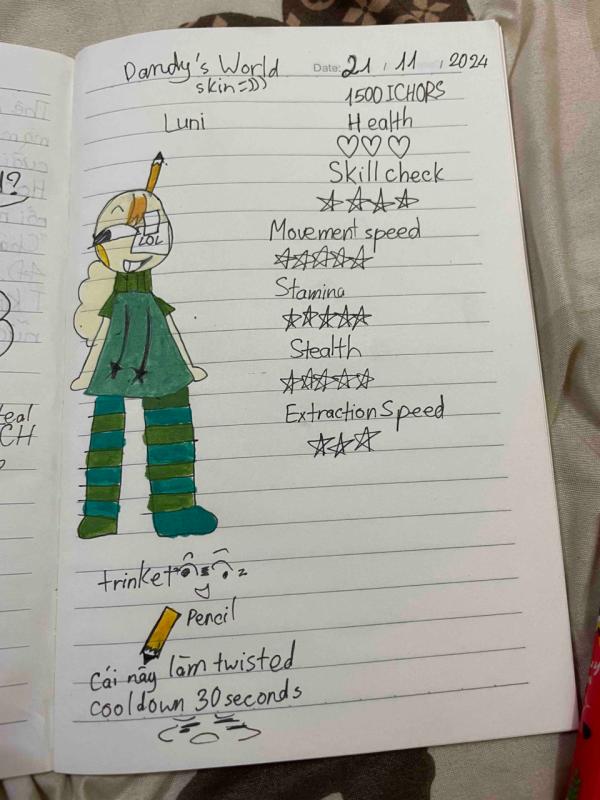 Dandy's World
skin =)))
Date: 21 / 11 / 2024
1500 ICHORS
Luni
Health
Skill check
LOL
Movement speed
Stamina
Stealth
Extraction Speed
trinket
Pencil
Cái này làm twisted
cooldown 30 seconds
?
eal
CH